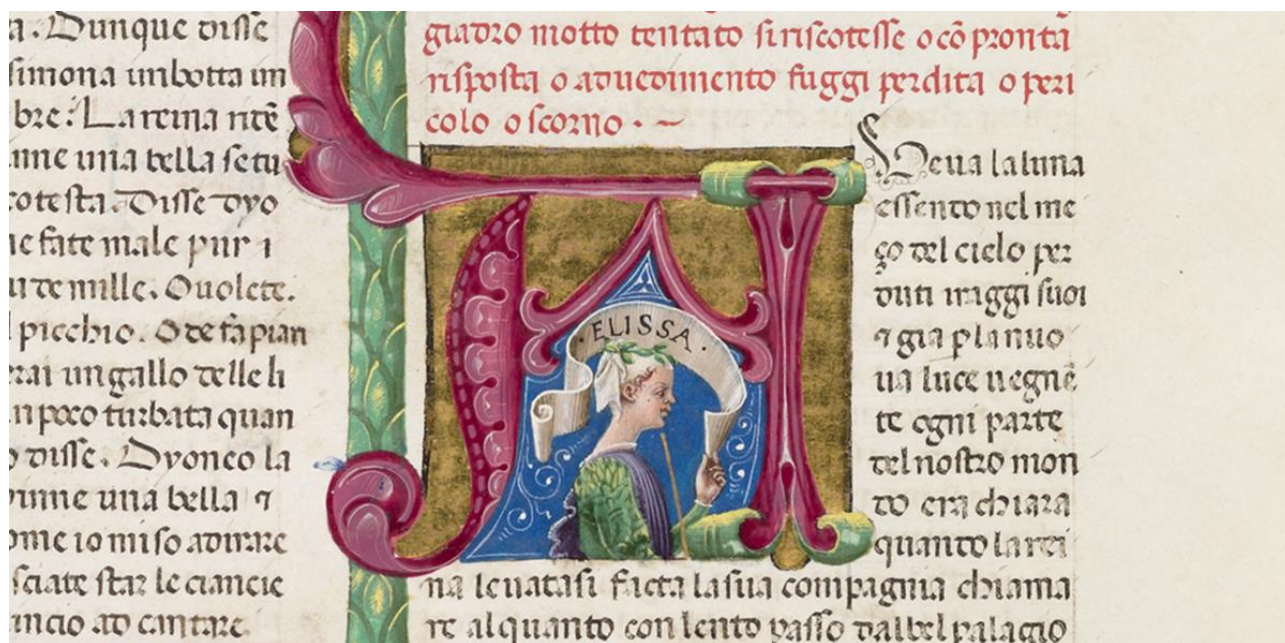 a. Dunque disse
simona unbotta un
bre. La reina ritē
une una bella se tu
cotesta. Disse dyo
ne fate male pur i
u de mille. O uolete.
l picchio. O de fa pian
erai un gallo delle li
n poco turbata quan
o disse. Dyoneo la
unne una bella ⁊
ome io mi so adirare
sciate star le ciancie
ancio ad cantare.
giadro motto tentato si riscotesse o cō pronta
risposta o aduedimento fuggi perdita o peri
colo o scorno.
ELISSA
Aueua la luna
essento nel me
ço del cielo per
duti i raggi suoi
⁊ gia p la nuo
ua luce uegnē
te ogni parte
del nostro mon
do era chiara
quanto la rei
na leuatasi facta la sua compagnia chiama
re alquanto con lento passo dal bel palagio